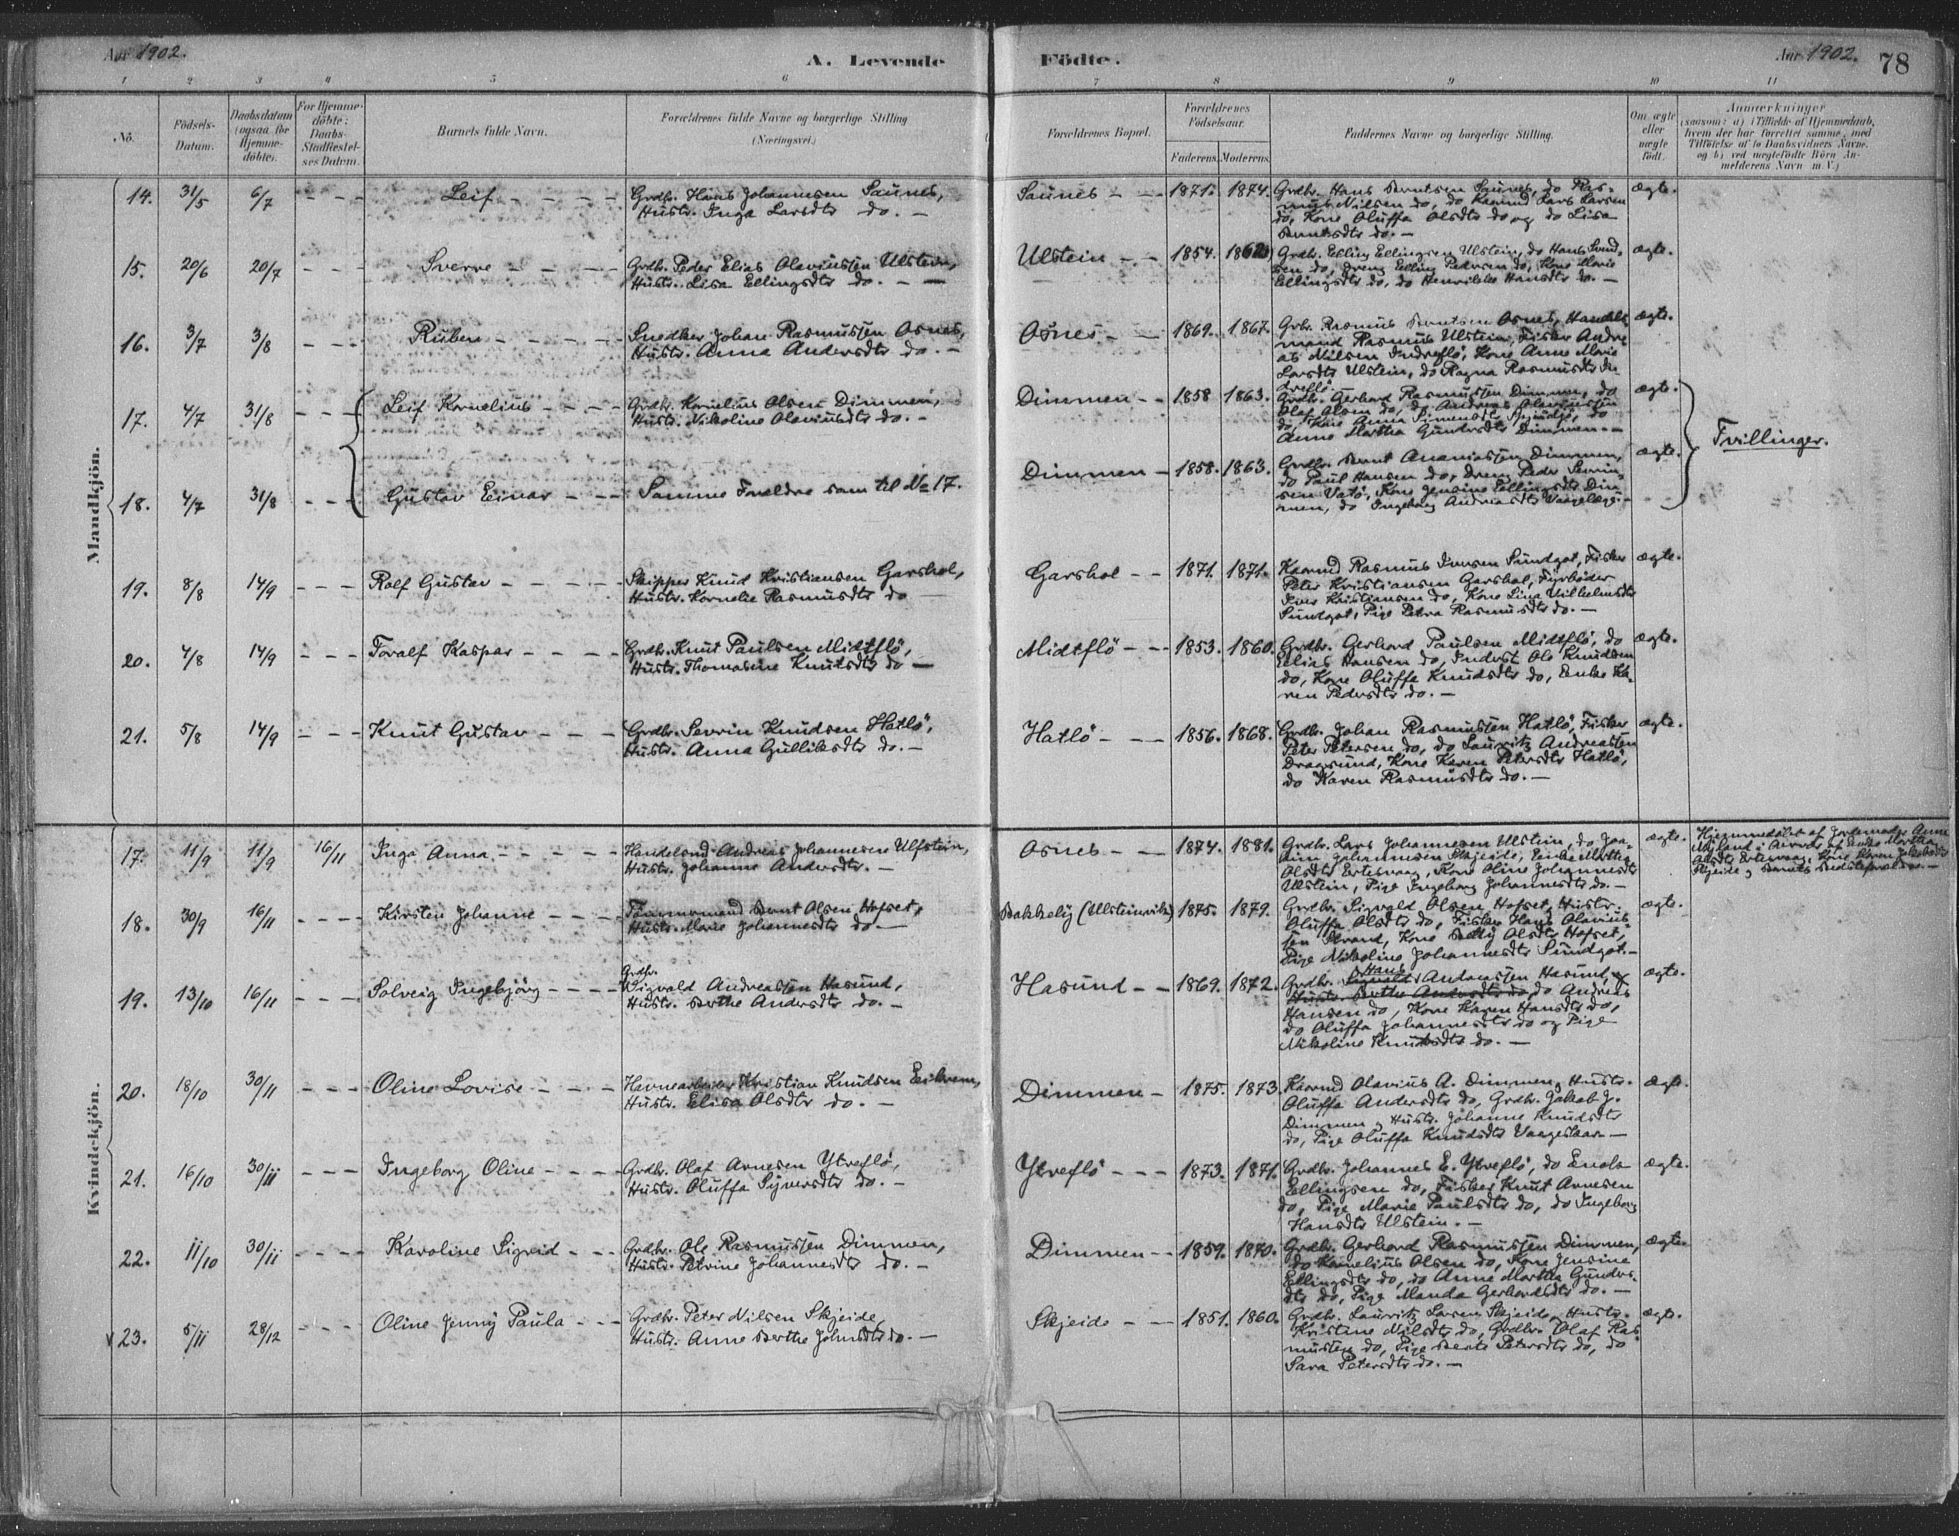 Aar 1902.
A. Levende
Födte.
Aar 1902.
78
1 2 3 4 5 6 7 8 9 10 11
No.
Födsels-
Datum.
Daabsdatum
(ogsaa for
Hjemme-
döbte).
For Hjemme-
döbte:
Daabs-
Stadfæstel-
ses Datum.
Barnets fulde Navn.
Forældrenes fulde Navne og borgerlige Stilling
(Næringsvei.)
Forældrenes Bopæl.
Forældrenes
Födselsaar.
Faderens. Moderens.
Faddernes Navne og borgerlige Stilling.
Om ægte
eller
uægte
födt.
Anmærkninger
(saasom: a) i Tilfælde af Hjemmedaab,
hvem der har forrettet samme, med
Tilföielse af to Daabsvidners Navne.
og b) ved uægtefödte Börn An-
melderens Navn m. V.)
Mandkjön.
14. 31/5 6/7 - - - Leif - - - -
Grdbr. Hans Johannesen Saunes,
Hustr. Inga Larsdtr do. -
Saunes - - 1871. 1874.
Grdbr. Hans Berntsen Saunes, do Ras-
mus Nilsen do, do Lars Larsen
do, Kone Oluffa Olsdtr do og do Lisa
Berntsdtr do. -
ægte.
15. 20/6 20/7 - - - Sverre - - - -
Grdbr. Peder Elias Olaviussen Ulstein,
Hustr. Lisa Ellingsdtr do. - -
Ulstein - - 1854.
Grdbr. Elling Ellingsen Ulstein, do Hans Knud-
sen do, Dreng Elling Pedersen do, Kone Marie
Ellingsdtr do, do Henrikke Hansdtr do. -
ægte.
16. 3/7 3/8 - - - Ruben - - - -
Snedker Johan Rasmussen Osnes,
Hustr. Anna Andersdtr do. -
Osnes - - 1869. 1867.
Rasmus Berntsen Osnes, Handels
mand Rasmus Ulstein, Fisker Andre
as Nilsen Indreflö, Kone Anne Marie
Larsdtr Ulstein, do Ragna Rasmusdtr In-
dreflö.
ægte.
17. 4/7 31/8 - - - Leif Kornelius - - - -
Grdbr. Kornelius Olsen Dimmen,
Hustr. Nikoline Olaviusdtr do. -
Dimmen - - 1858 1863.
Grdbr. Gerhard Rasmussen Dimmen, do
Olaf Olsen do, do Andreas Olaviussen
do, Kone Anna do
Anne Martha Gundersdtr Dimmen. -
ægte.
Tvillinger.
18. 4/7 31/8 - - - Gustav Einar - - -
Samme Forældre som til No 17.
Dimmen - 1858. 1863.
Grdbr. Bernt Ananiassen Dimmen,
do Paul Hansen do, Dreng Peder Severin-
sen Vatö, Kone Jensine Ellingsdtr Dim-
men, do Ingeborg Andreasdtr
ægte.
19. 8/8 14/9 - - - Rolf Gustav - - - -
Skipper Knud Kristiansen Garshol,
Hustr. Kornelie Rasmusdtr do
Garshol - - 1871. 1871.
Rasmus Iversen Sundgot, Fisker
Peter Kristiansen Garshol, Fyrböder
Iver Kristiansen do, Kone Lina Vilhelmsdtr
Sundgot, Pige Petra Rasmusdtr do. -
ægte.
20. 4/8 14/9 - - - Toralf Kaspar - - - -
Grdbr. Knut Paulsen Midtflö,
Hustr. Thomasine Knutsdtr do -
Midtflö - - 1853. 1860.
Grdbr. Gerhard Paulsen Midtflö, do
Elias Hansen do, Inderst Ole Knudsen
do, Kone Oluffa Knudsdtr do, Enke Ka-
ren Pedersdtr do. -
ægte.
21. 5/8 14/9 - - - Knut Gustav - - -
Grdbr. Sevrin Knudsen Hatlö,
Hustr. Anna Gulliksdtr do. -
Hatlö - - - 1856. 1868.
Grdbr. Johan Rasmussen Hatlö, Fisker
Peter Petersen do, do Lauritz Andreassen
Dragsund, Kone Karen Petersdtr Hatlö,
do Karen Rasmusdtr do. -
ægte.
Kvindekjön.
17. 11/9 11/9 16/11 Inga Anna - - - -
Handelsmd Andreas Johannesen Ulfstein,
Hustr. Johanne Andersdtr. -
Osnes - - 1874. 1881.
Grdbr. Lars Johannesen Ulstein, do Joa-
kim Johannesen Skjeide, Enke Martha
Olsdtr Ertesvaag, Kone Oline Johannesdtr
Ulstein, Pige Ingeborg Johannesdtr do. -
ægte.
Hjemmedöbt af Jordemoder Anne
Mjland i Nærvær af Enke Martha
Olsdtr Ertesvaag, Kone Karen Jakobsdtr
Skjeide og Barnets Bedsteforældre. -
18. 30/9 16/11 - - - Kirsten Johanne - - - -
Tömmermand Bernt Olsen Hofset,
Hustr. Marie Johannesdtr do. -
Bakkely (Ulsteinvik) 1875. 1879.
Grdbr. Sigvald Olsen Hofset, Hustr.
Oluffa Olsdtr do, Fisker Hans Olavius-
sen Strand, Kone Betty Olsdtr Hofset,
Pige Nikoline Johannesdtr Sundgot. -
ægte.
19. 13/10 16/11 - - - Solveig Ingebjörg - - -
Grdbr.
Sigvald Andreassen Hasund,
Hustr. Berthe Andersdtr do. -
Hasund - - 1869. 1872.
Hans
Grdbr. Sigvald Andreassen Hasund, og
Hustr. Berthe Andersdtr do, do Andreas
Hansen do, Kone Karen Hansdtr do,
do Oluffa Johannesdtr do og Pige
Nikoline Knutsdtr do. -
ægte.
20. 18/10 30/11 - - - Oline Lovise - - - -
Havnearbeider Kristian Knudsen Eikrem,
Hustr. Elisa Olsdtr do. -
Dimmen - 1875. 1873.
Olavius A. Dimmen, Hustr.
Oluffa Andersdtr do, Grdbr. Jakob J.
Dimmen, Hustr. Johanne Knudsdtr
do, Pige Oluffa Knudsdtr -
ægte.
21. 16/10 30/11 - - - Ingeborg Oline - - - -
Grdbr. Olaf Arnesen Ytreflö,
Hustr. Oluffa Syversdtr do. -
Ytreflö - - - 1873. 1871.
Grdbr. Johannes E. Ytreflö, do Enok
Ellingsen do, Fisker Knut Arnesen
do, Pige Marie Paulsdtr do, do Ingeborg
Hansdtr Ulstein. -
ægte.
22. 11/10 30/11 - - - Karoline Sigrid - - -
Grdbr. Ole Rasmussen Dimmen,
Hustr. Petrine Johannesdtr do. -
Dimmen - - 1859. 1870.
Grdbr. Gerhard Rasmussen Dimmen,
do Kornelius Olsen do, Kone Jensine
Ellingsdtr do, do Anne Martha Gunders-
dtr do, Pige Manda Gerhardsdtr do. -
ægte.
23. 5/11 28/12 - - - Oline Jenny Paula - - -
Grdbr. Peter Nilsen Skjeide,
Hustr. Anne Berthe Johnsdtr do. -
Skjeide - - - 1851. 1860.
Grdbr. Lauritz Larsen Skjeide, Hustr.
Kristine Nilsdtr do, Grdbr. Olaf Ras-
mussen do, Pige Berte Petersdtr do, do
Sara Petersdtr do. -
ægte.